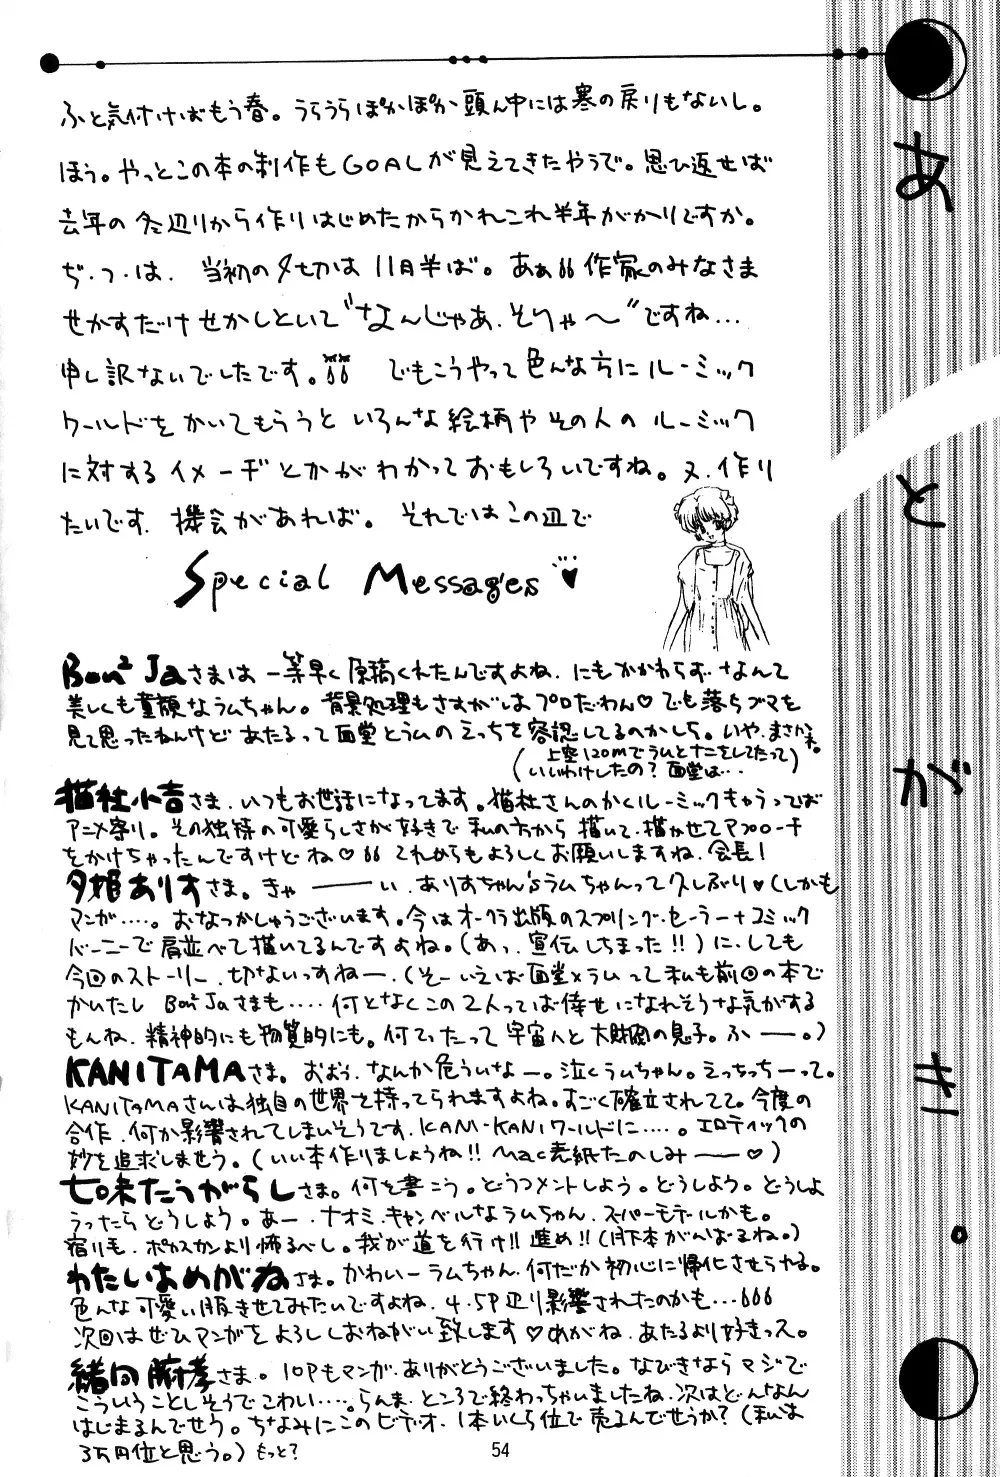 あとがき。
ふと気付けばおもう春。うらうらぽかぽか頭ん中には寒の戻りもないし。
ほう。やっとこの本の制作もGOALが見えてきたやうで。思ひ返せば
去年の冬辺りから作りはじめたからかれこれ半年がかりですか。
ぢ・つ・は、当初の〆切は11月半ば。あぁ66作家のみなさま
せかすだけせかしといて"なんじゃあ、そりゃ〜"ですね…
申し訳ないでしたです。66 でもこうやって色んな方にルーミック
ワールドをかいてもらうといろんな絵柄やその人のルーミック
に対するイメーヂとかがわかっておもしろいですね。又、作り
たいです、機会があれば。それではこの辺で
Special Messages♥
Bon² Jaさまは一等早く原稿くれたんですよね、にもかかわらず、なんて
美しくも童顔なラムちゃん。背景処理もさすがはプロだわん♡でも落ちゴマを
見て思ったねんけどあたるって面堂とラムのえっちを容認してるのかしら。いや、まさかネ。
(上空120mでラムとナニをしてたって
いいわけしたの?面堂は…)
猫社小吉さま、いつもお世話になってます。猫社さんのかくルーミックきゃらってば
アニメ寄り。その独特の可愛らしさが好きで私の方から描いて、描かせてアプローチ
をかけちゃったんですけどね♡66 これからもよろしくお願いしますね、会長!
夕姫ありすさま。きゃーーーい、ありすちゃん'sラムちゃんって久しぶり♥(しかも
マンガ……。おなつかしゅうございます。今はオークラ出版のスプリング・セーラー+コミック
バーニーで肩並べて描いてるんですよね。(あっ、宣伝しちまった!!)に、しても
今回のストーリー、切ないっすねー、(そーいえば面堂×ラムって私も前回の本で
かいたし Bon²Jaさまも……何となくこの2人ってば倖せになれそうな気がする
もんね、精神的にも物質的にも。何てったって宇宙人と大財閥の息子。ふーー。)
KANITAMAさま。おおう、なんか危ういなー。泣くラムちゃん。えっちっちーって。
KANITAMAさんは独自の世界を持ってられますよね。すごく確立されてて。今度の
合作、何か影響されてしまいそうです、KANI-KANIワールドに……。エロティックの
妙を追求しませう。(いい本作りましょうね!!Mac表紙たのしみーー♡)
七味たうがらしさま。何を書こう。どうコメントしよう。どうしよう。どうしよ
うったらどうしよう。あー、ナオミ・キャンベルなラムちゃん、スーパーモデルかも。
宿り毛、ポカスカンより怖るべし。我が道を行け!!進め!!(月下本がんばるね。)
わたしはめがねさま。かわいーラムちゃん、何だか初心に帰化させられる。
色んな可愛い服きせてみたいですよね、4.5P辺り影響されたのかも…666
次回はぜひマンガをよろししおねがい致します♡めがね、あたるより好きっス。
緒向 腑孝さま。10Pもマンガ、ありがとうございました。なびきならマジで
こういうことしそうでこわい……。らんま、ところで終わっちゃいましたね、次はどんなん
はじまるんでせう。ちなみにこのビデオ、1本いくら位で売るんでせうか?(私は
3万円位と思う。)もっと?
54